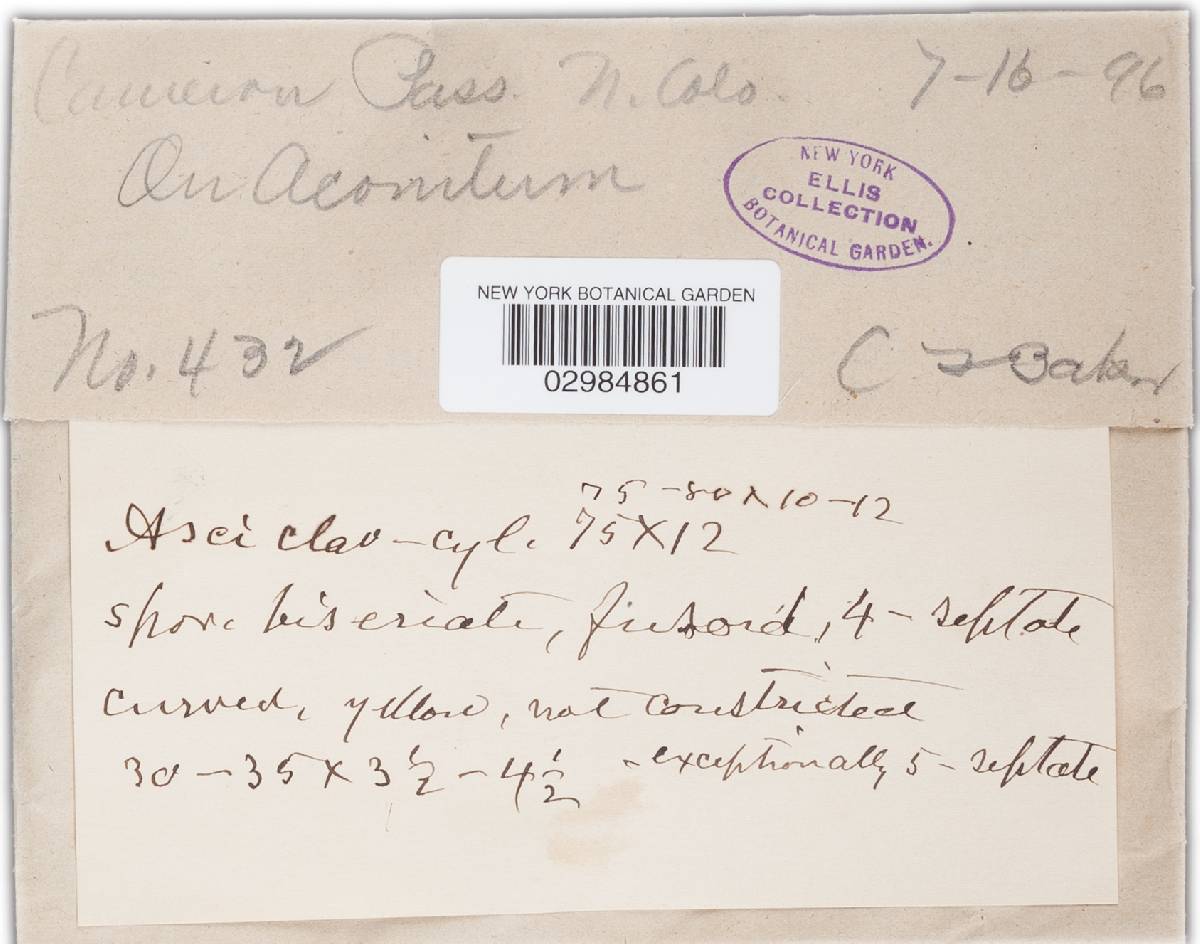 Cameron Pass. N. Colo. 7-16-96
On Aconitum
NEW YORK
ELLIS
COLLECTION
BOTANICAL GARDEN.
NEW YORK BOTANICAL GARDEN
02984861
No. 432
C F Baker
75-80 x 10-12
Asci clav-cyl. 75 X 12
spore biseriate, fusoid, 4-septate
curved, yellow, not constricted
30-35 x 3 1/2 - 4 1/2 - exceptionally 5-septate